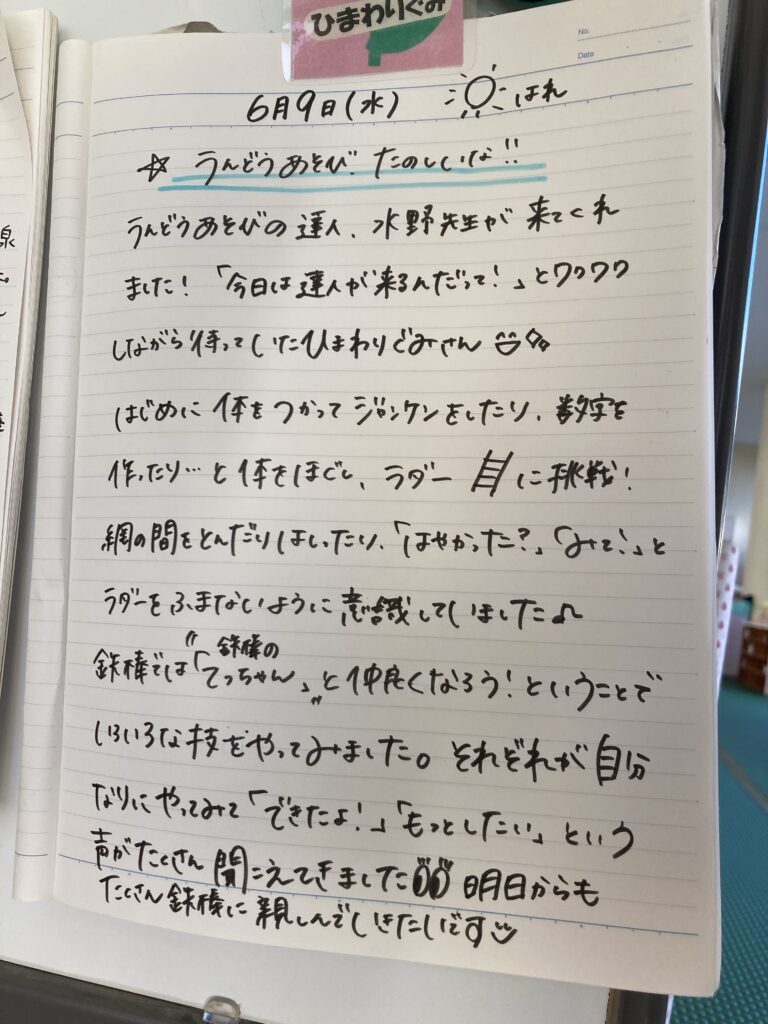 ひまわりぐみ
No.
Date
6月9日(水) はれ
☆ うんどうあそび たのしいな!!
うんどうあそびの達人、水野先生が来てくれ
ました!「今日は達人が来るんだって!」とワクワク
しながら待っていたひまわりぐみさん
はじめに体をつかってジャンケンをしたり、数字を
作ったり…と体をほぐし、ラダーに挑戦!
網の間をとんだりはしったり、「はやかった?」「みて!」と
ラダーをふまないように意識していました♪
鉄棒では"「鉄棒のてっちゃん」"と仲良くなろう!ということで
いろいろな技をやってみました。それぞれが自分
なりにやってみて「できたよ!」「もっとしたい」という
声がたくさん聞こえてきました 明日からも
たくさん鉄棒に親しんでいきたいです